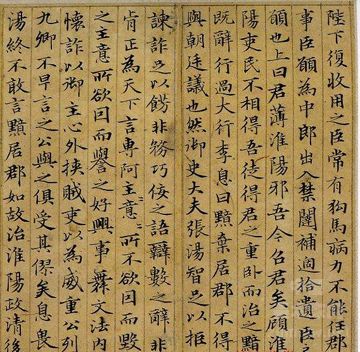 陛下復收用之臣常有狗馬病力不能任郡
事臣願為中郎出入禁闥補過拾遺臣
願也上曰君薄淮陽邪吾今召君矣顧淮
陽吏民不相得吾徒得君之重臥而治之黯
既辭行過大行李息曰黯棄居郡不得
與朝廷議也然御史大夫張湯智足以拒
諫詐足以飾非務巧佞之語辯數之辭非
肯正為天下言專阿主意〻所不欲因而毀
之主意所欲因而譽之好興事舞文法內
懷詐以御主心外挾賊吏以為威重公列
九卿不早言之公與之俱受其僇矣息畏
湯終不敢言黯居郡如故治淮陽政清後